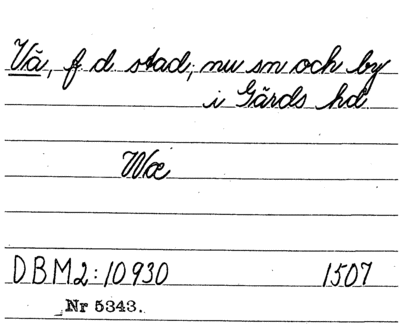 Vä, f d stad; nu sn och by
i Gärds hd.
Wæ
DBM2:10930 1507
Nr 5343.